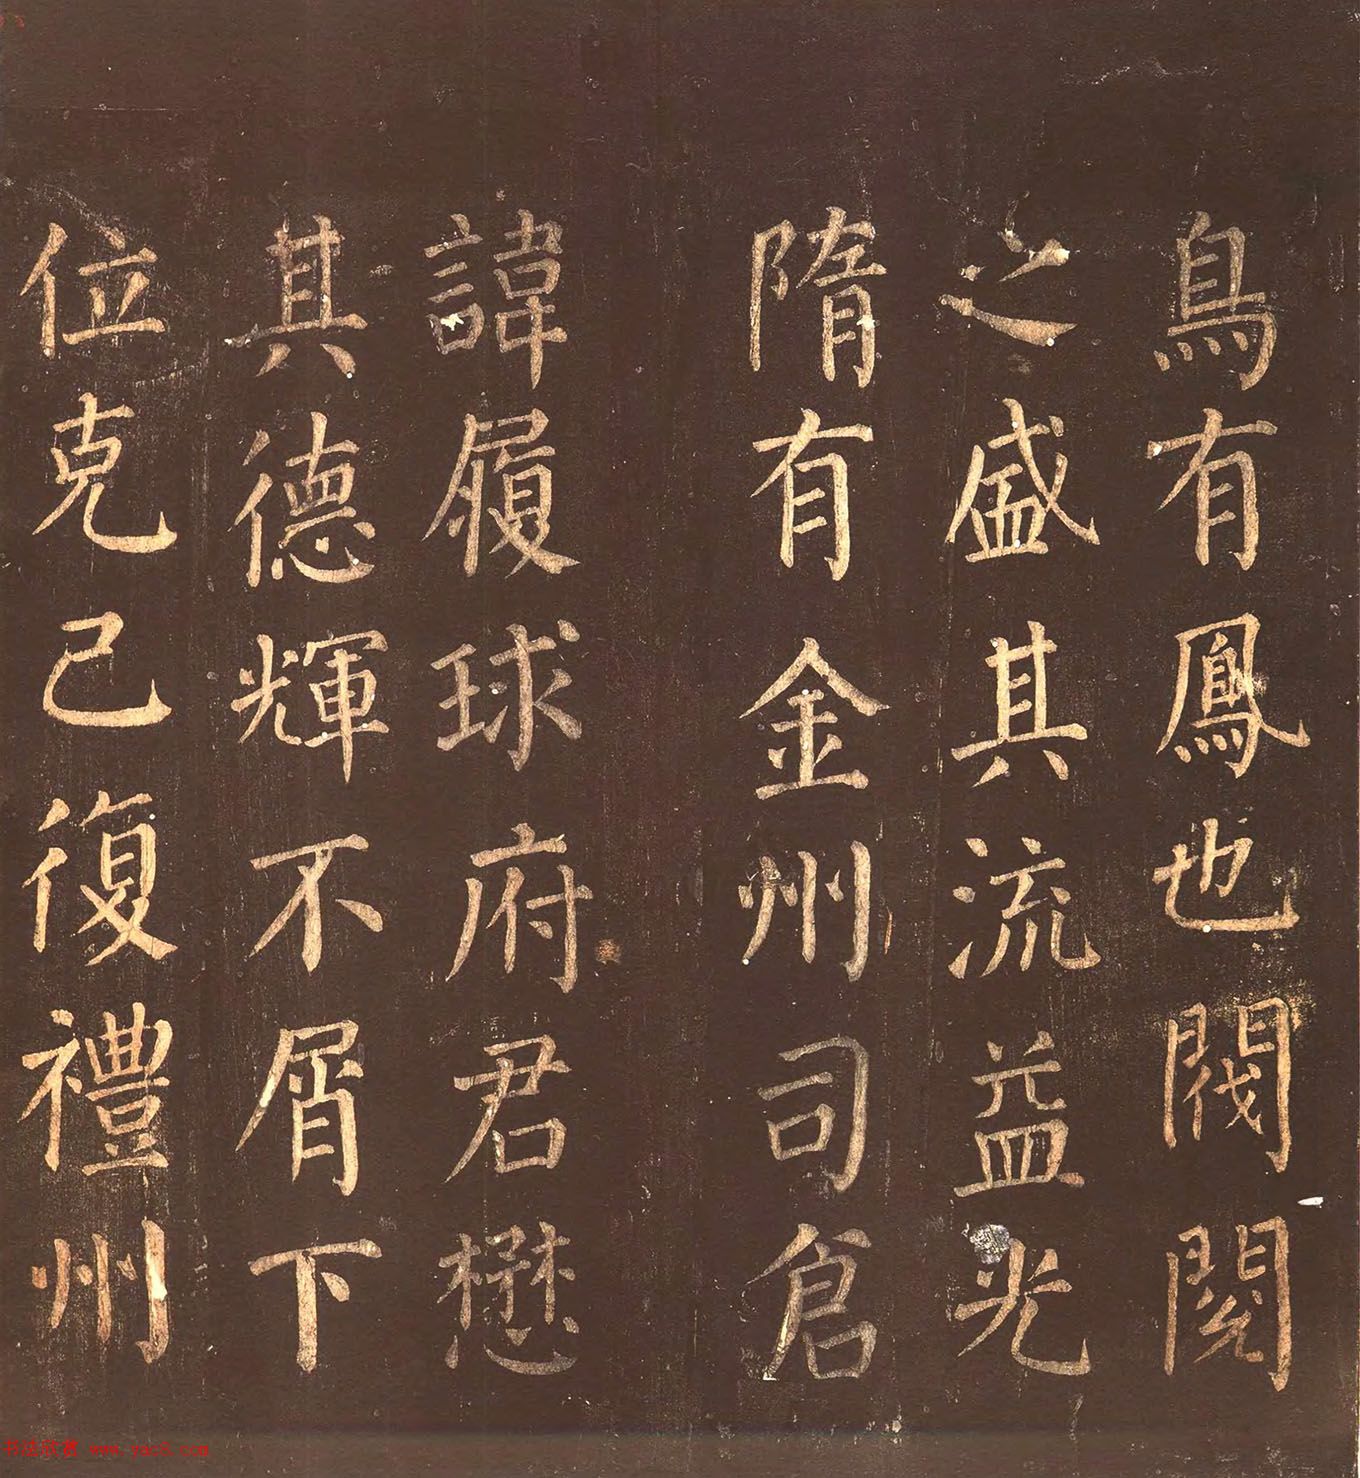 鳥有鳳也閥閱
之盛其流益光
隋有金州司倉
諱履球府君懋
其德輝不屑下
位克己復禮州
书法欣赏 www.yac8.com